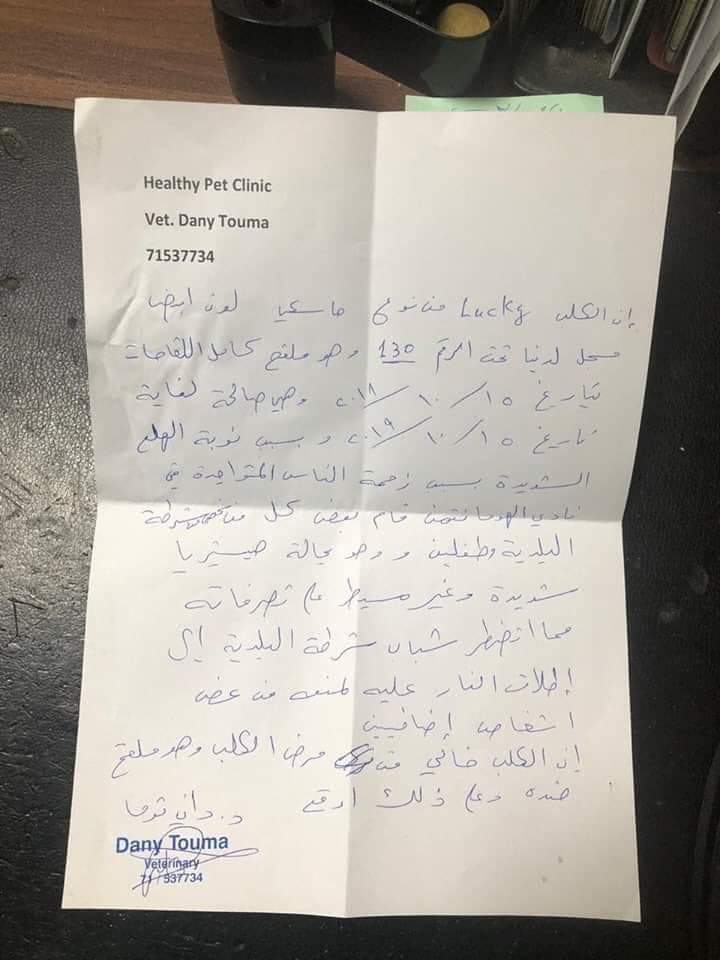 Healthy Pet Clinic
Vet. Dany Touma
71537734
إن الكلب Lucky من نوع هاسكي لون ابيض
مسجل لدينا تحت الرقم 130 وهو ملقح كامل اللقاحات
بتاريخ ١٥/١٠/٢٠١٨ وهي صالحة لغاية
تاريخ ١٥/١٠/٢٠١٩ و بسبب نوبة الهلع
الشديدة بسبب زحمة الناس المتواجدة في
نادي قام بعض كل من شرطة
البلدية وطفلين و وهو بحالة هيستيريا
شديدة وغير مسيطر على تصرفاته
مما اضطر شباب شرطة البلدية إلى
إطلاق النار عليه لمنعه من عض
اشخاص إضافيين
إن الكلب خالي من مرض الكلب وهو ملقح
ضده وعلى ذلك اوقع د. داني توما
Dany Touma
Veterinary
71 537734